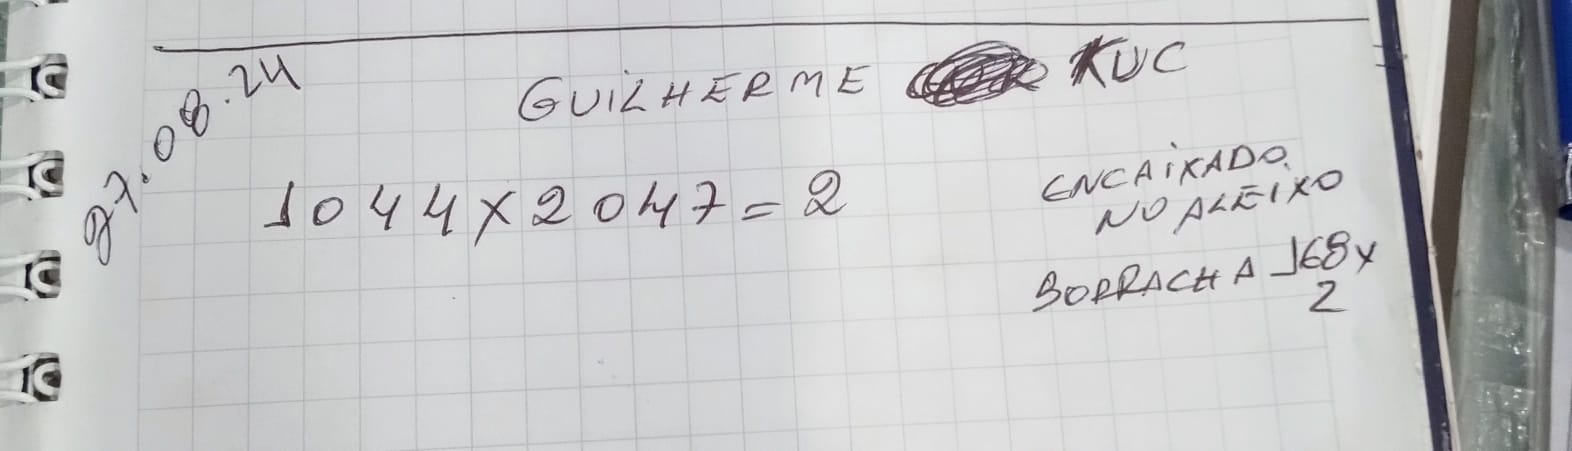 27.08.24
GUILHERME KUC
1044x2047=2
ENCAIXADO
NO ALEIXO
BORRACHA 168x
2